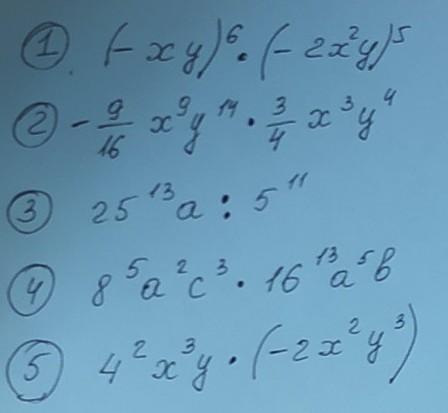 ① (-xy)⁶ · (-2x²y)⁵
② -9/16 x⁹y¹⁴ · 3/4 x³y⁴
③ 25¹³a : 5¹¹
④ 8⁵a²c³ · 16¹³a⁵b
⑤ 4²x³y · (-2x²y³)